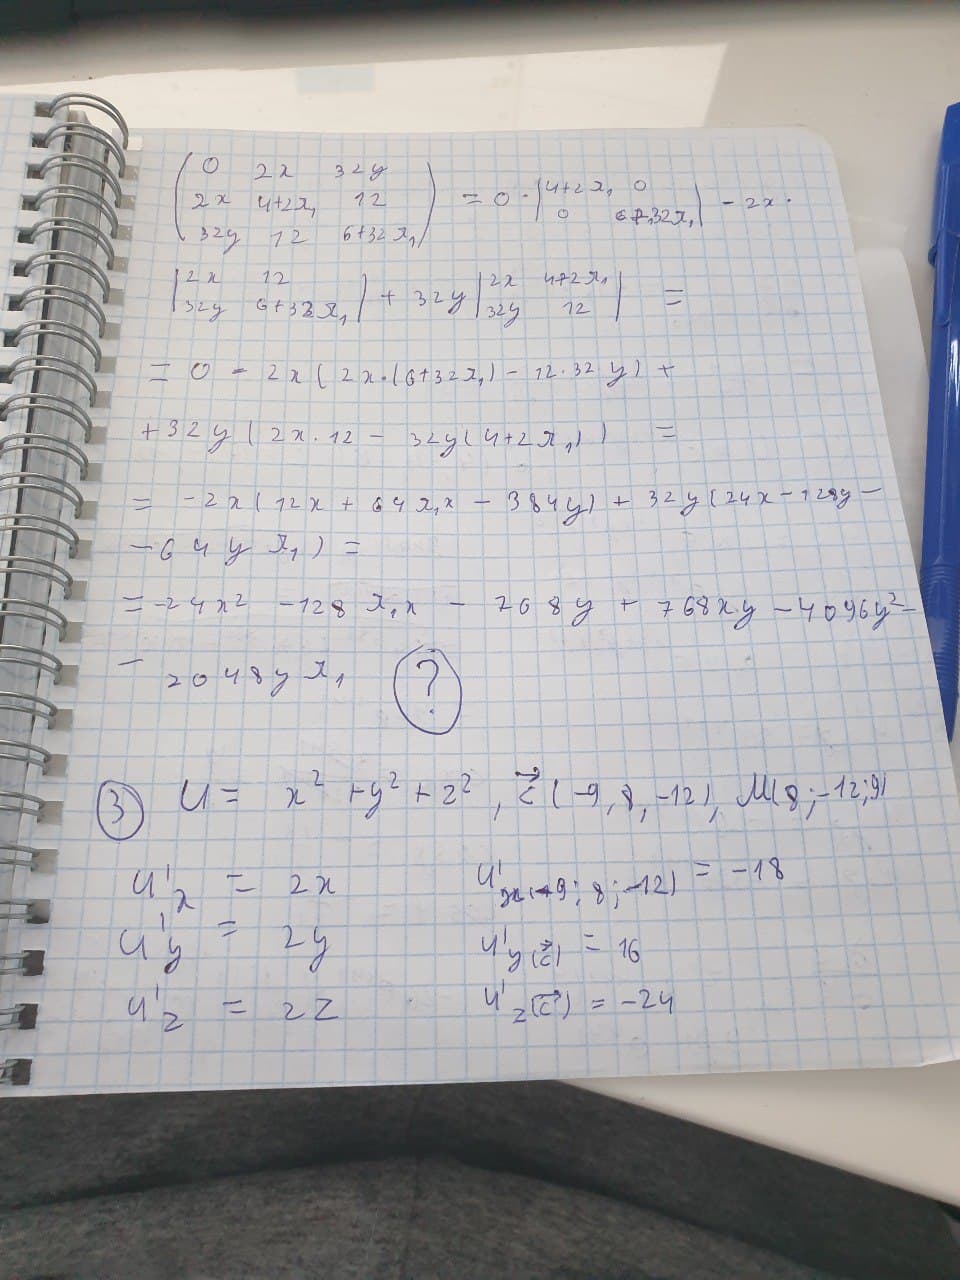 ( 0 2x 32y
2x 4+2λ₁ 12
32y 12 6+32λ₁ ) = 0 · |4+2λ₁ 0
0 32λ₁| - 2x ·
|2x 12
32y 6+32λ₁| + 32y |2x 4+2λ₁
32y 12| =
= 0 - 2x ( 2x·(6+32λ₁) - 12·32y) +
+32y ( 2x·12 - 32y(4+2λ₁)) =
= -2x(12x + 64λ₁x - 384y) + 32y(24x - 128y -
-64yλ₁) =
= -24x² - 128λ₁x - 768y + 768xy - 4096y² -
- 2048yλ₁ ?
③ U = x² + y² + z², c⃗(-9, 8, -12), M(8; -12; 9)
U'x = 2x U'x(-9; 8; -12) = -18
U'y = 2y U'y(c⃗) = 16
U'z = 2z U'z(c⃗) = -24